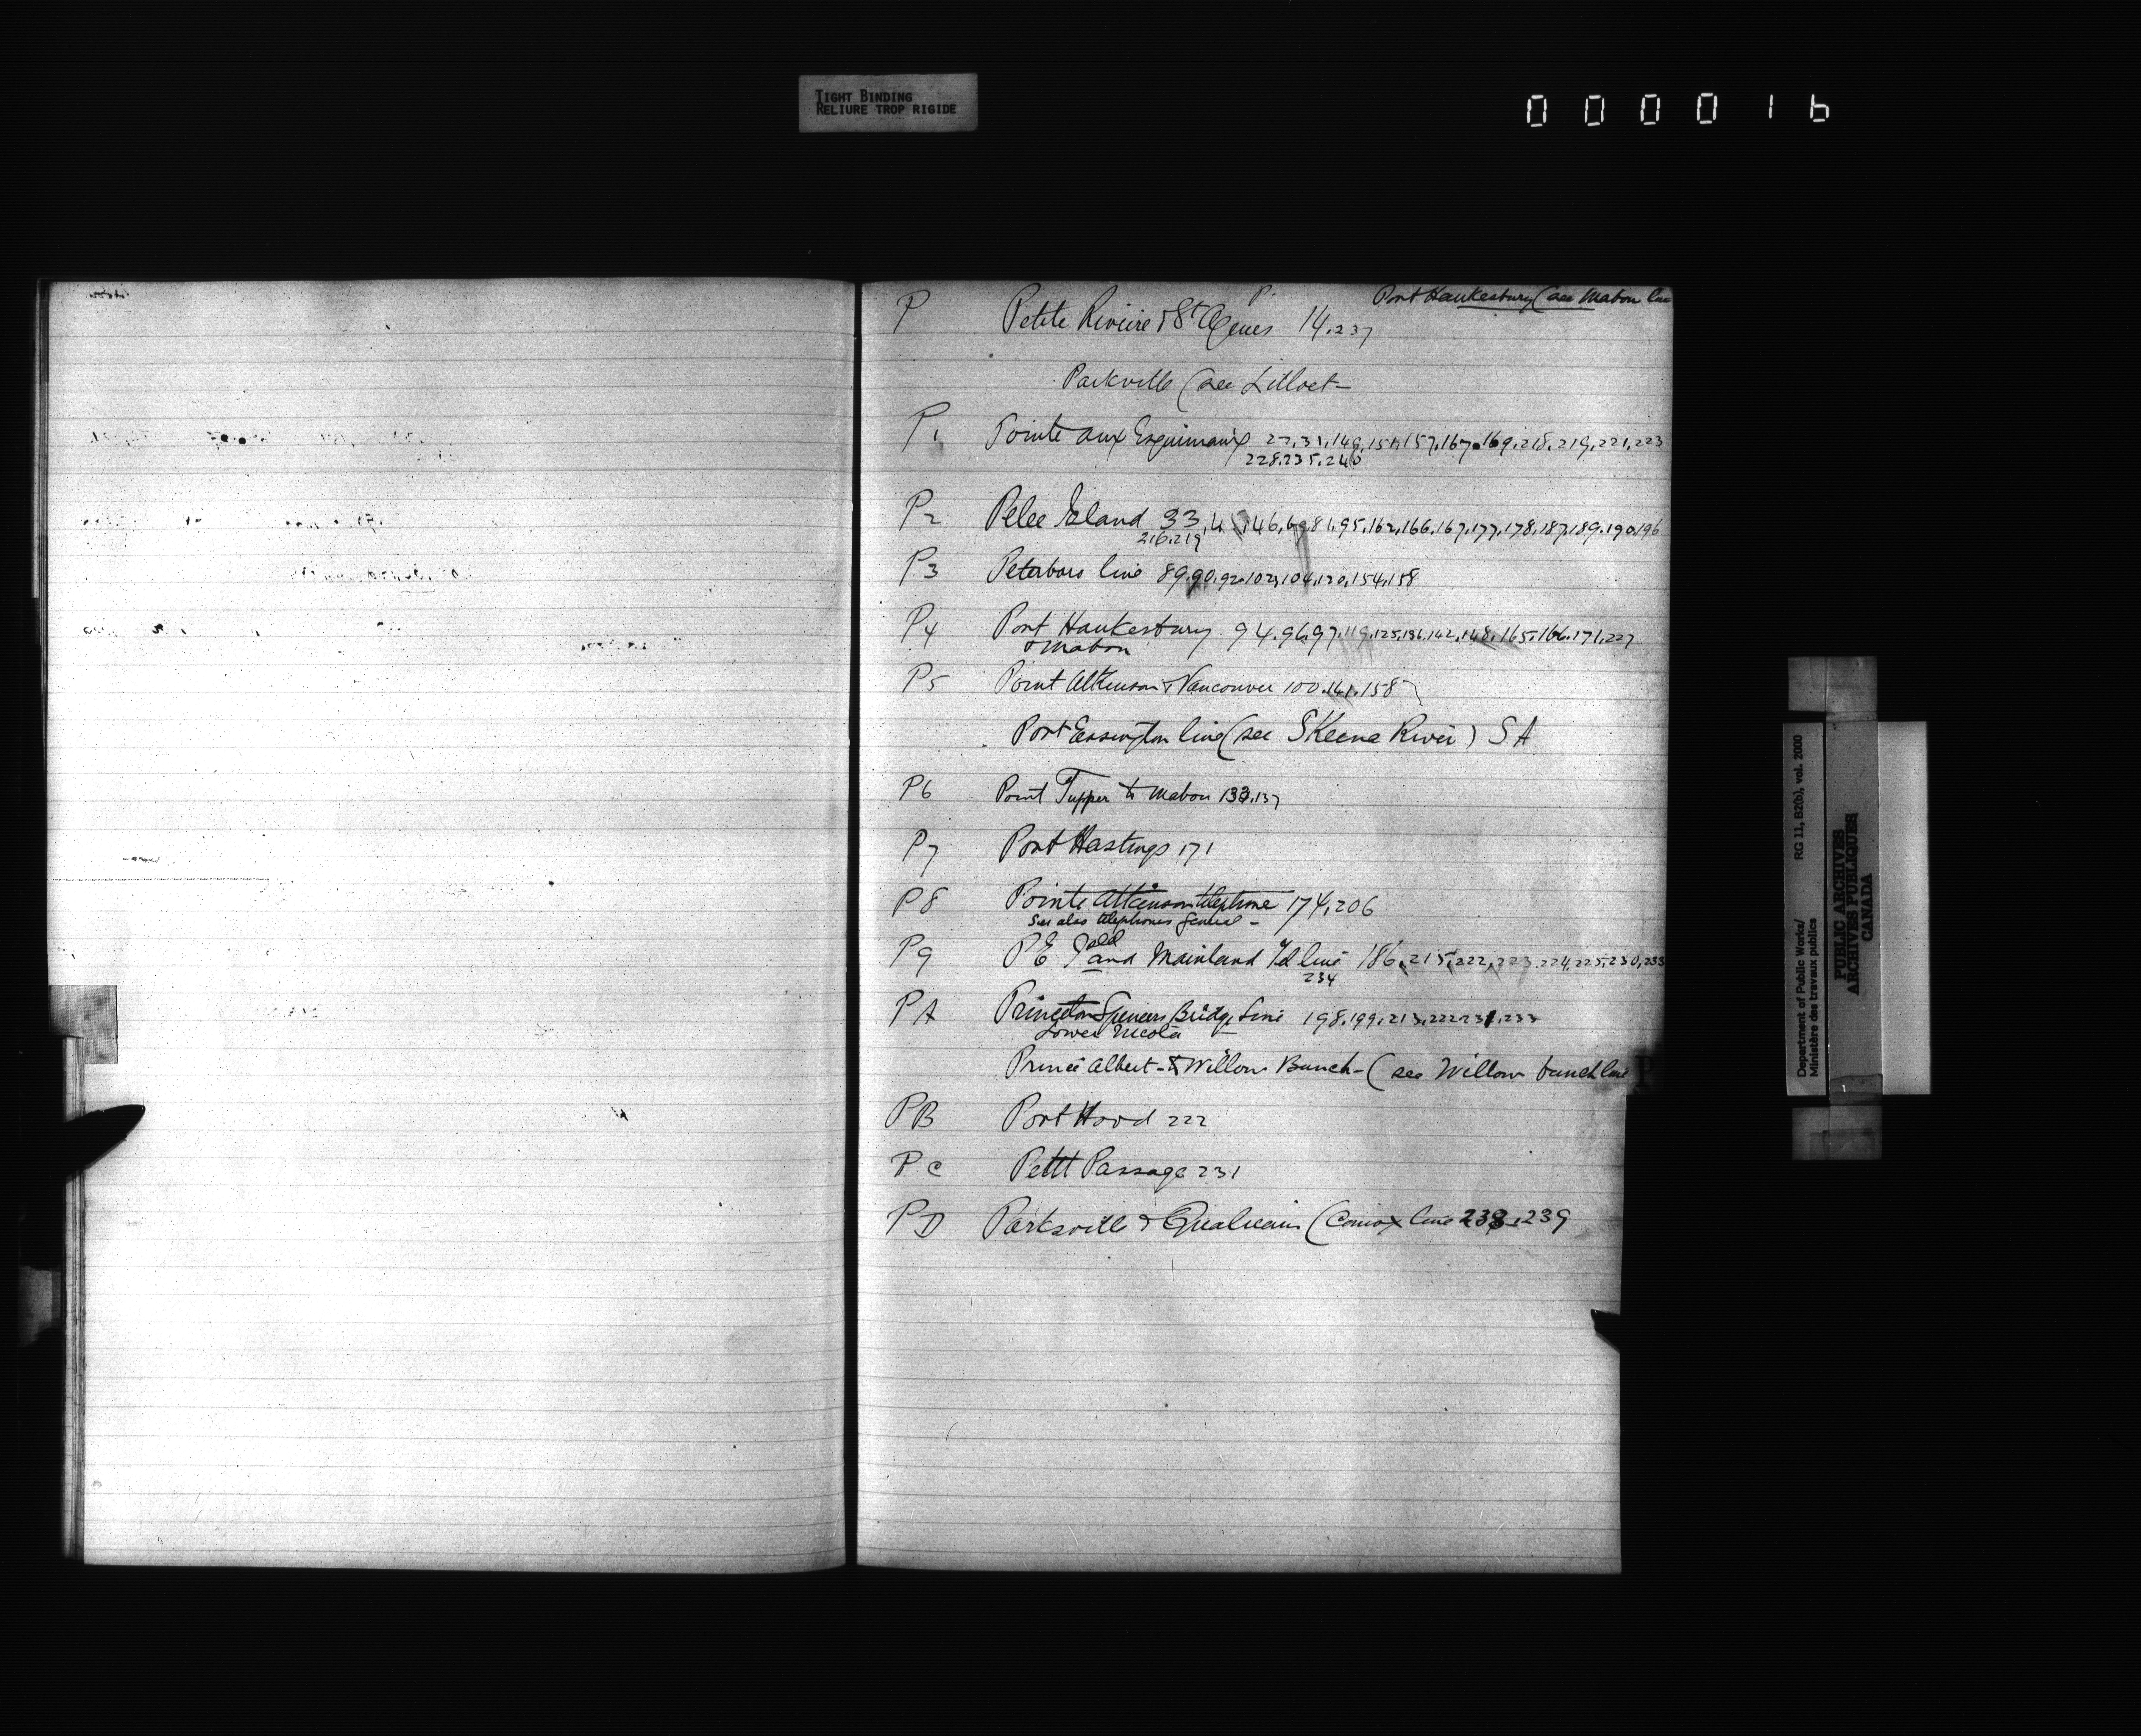 TIGHT BINDING
RELIURE TROP RIGIDE
000016
P.
Port Haukesbury (see Mabou line
P Petite Riviere & St Agnes 14.237
Parkville (see Lilloet
P1 Pointe aux Esquimaux 27,31,149,151,157,167,169,218,219,221,223
228,235,240
P2 Pelee Island 33, 146, 81,95,162,166,167,177,178,187,189,190,196
216,219
P3 Peterboro line 89,90,92,102,104,120,154,158
P4 Port Haukesbury 94,96,97,119,125,136,142,148,165,166,171,227
& Mabou
P5 Point Atkinson & Vancouver 100,141,158
Port Essington line (see SKeena River) SA
P6 Point Tupper to Mabou 133,137
P7 Port Hastings 171
P8 Pointe Atkinson telephone 174,206
See also telephones General -
P9 P E Island and Mainland Tel line 186,215,222,223,224,225,230,233
234
PA Princeton Spences Bridge Line 198,199,213,222,231,233
Lower Nicola
Prince Albert - & Willow Bunch - (see Willow bunch line
P
PB Port Hood 222
PC Petit Passage 231
PD Parksville & Qualicum (Comox line 238,239
Department of Public Works/ RG 11, B2(b), vol. 2000
Ministère des travaux publics
PUBLIC ARCHIVES
ARCHIVES PUBLIQUES
CANADA